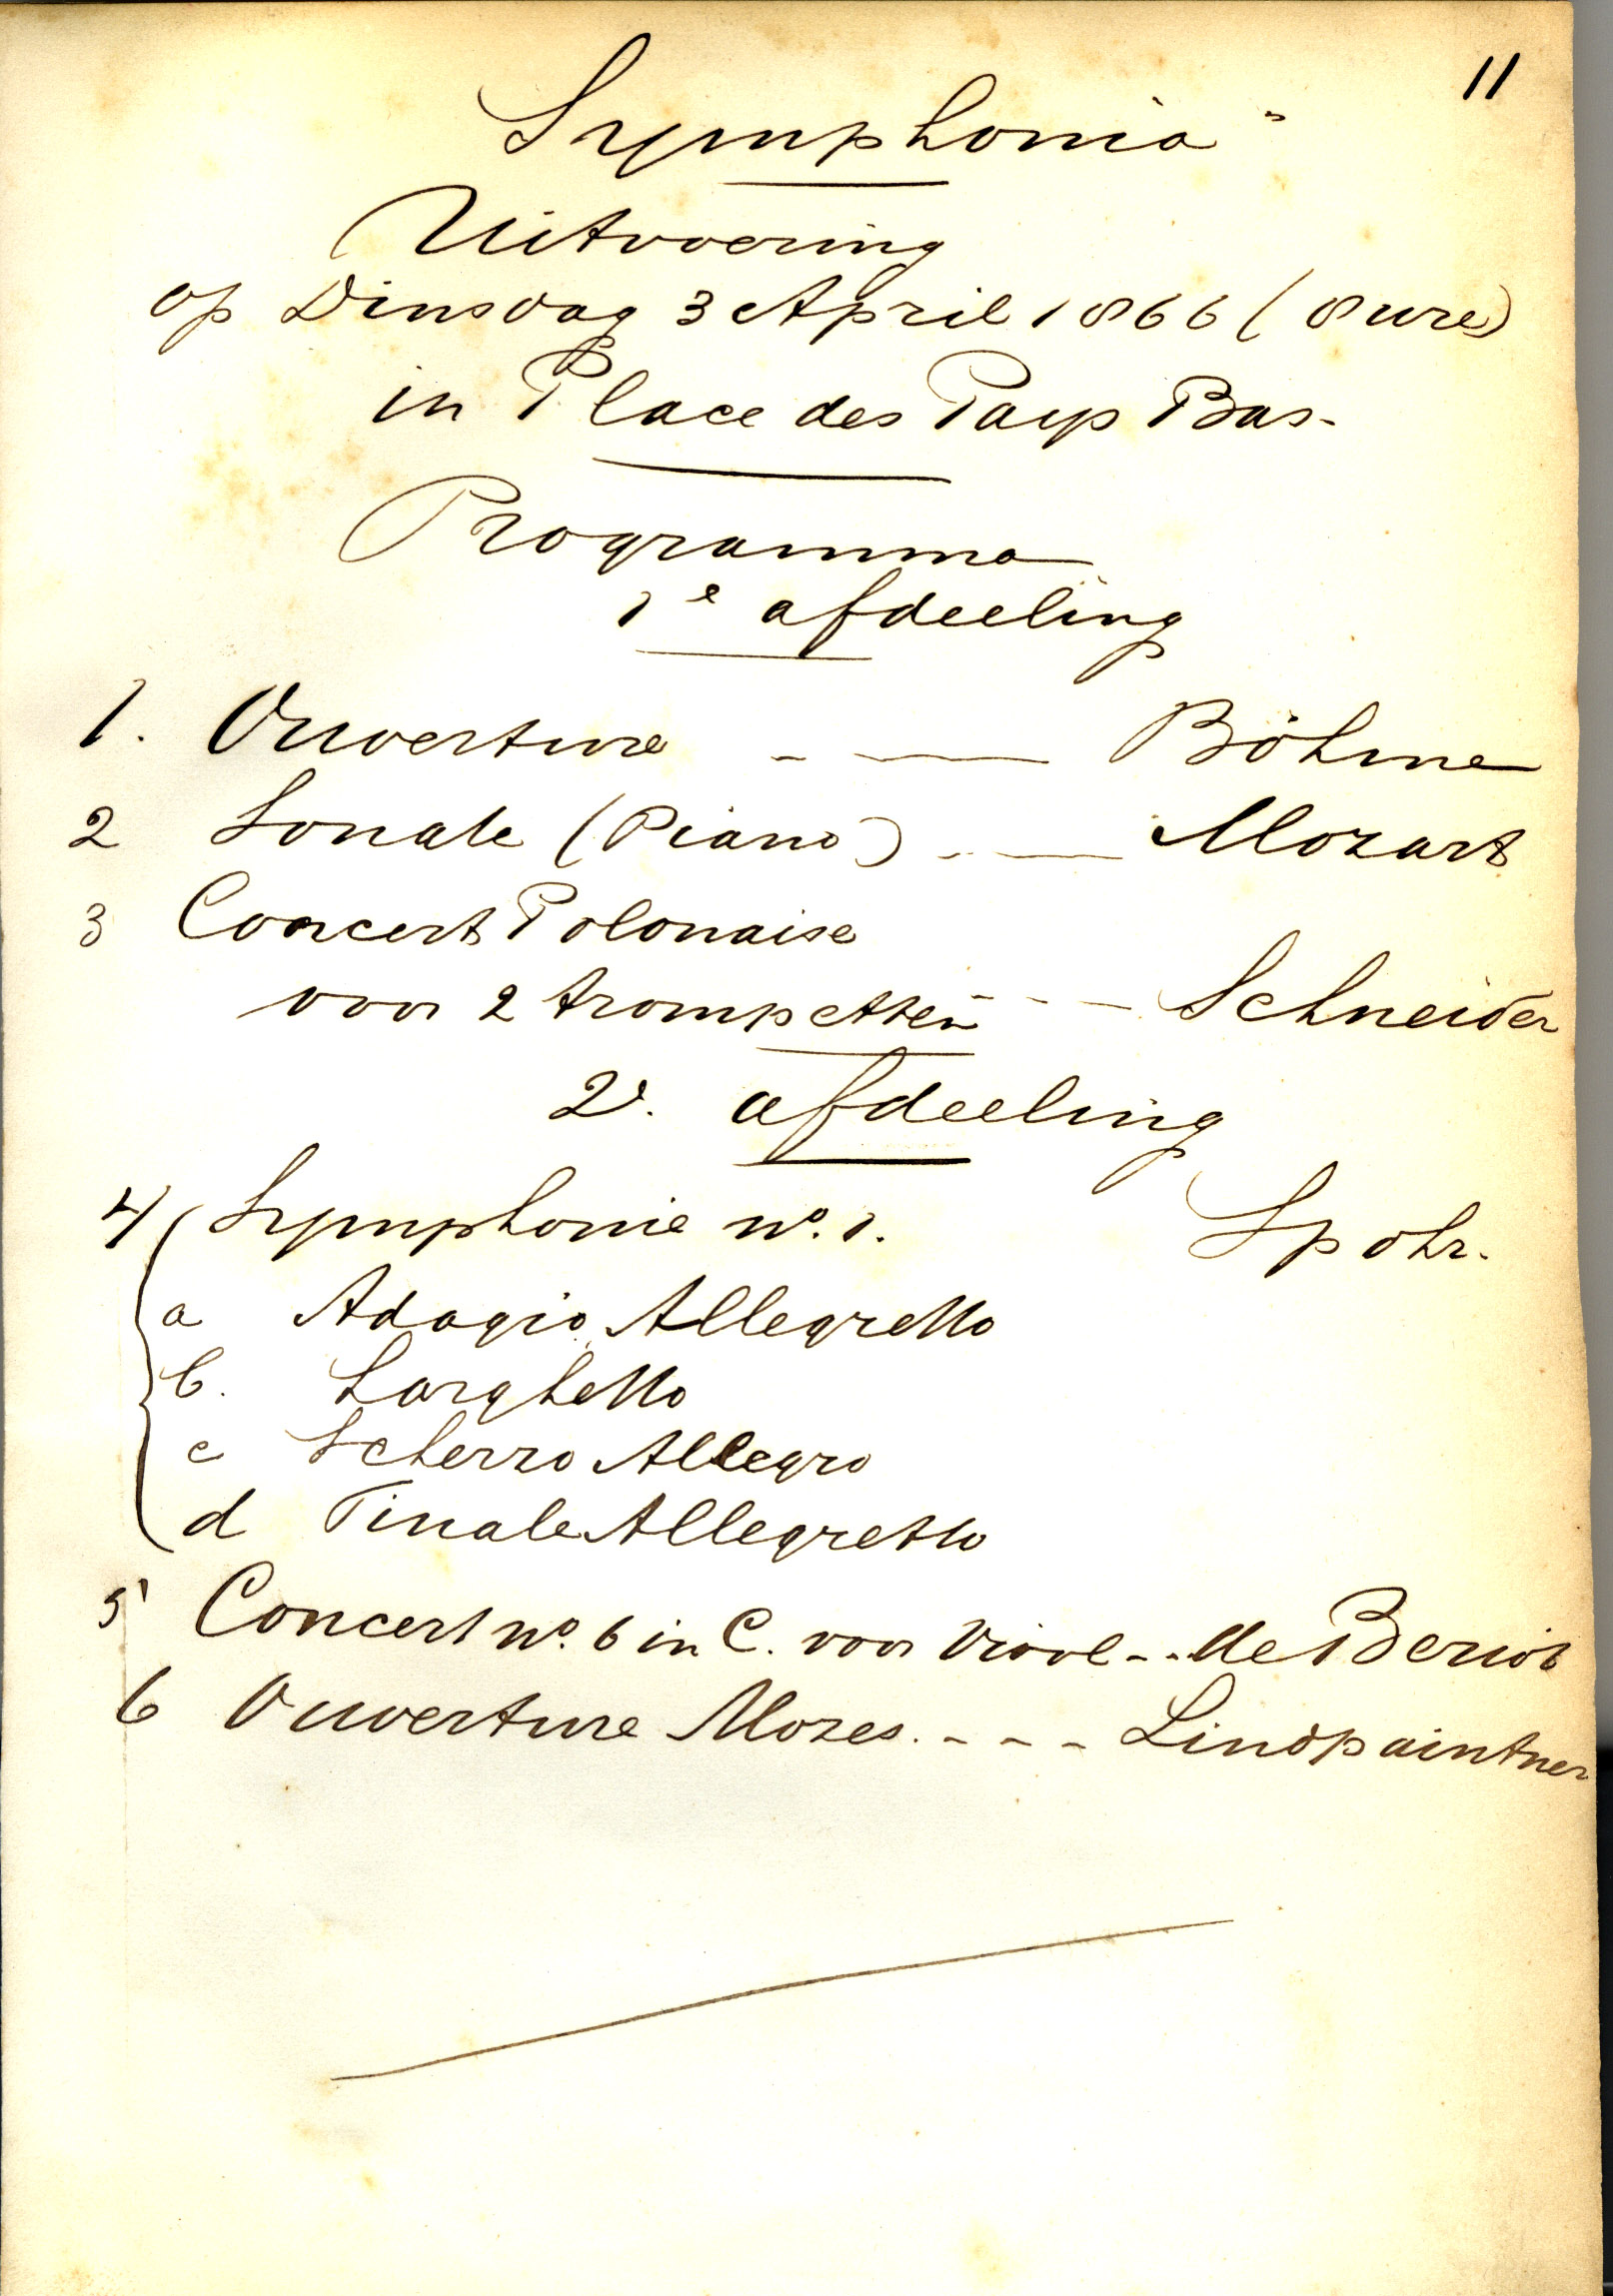 11
Symphonia"
Uitvoering
op Dinsdag 3 April 1866 (8 ure)
in Place des Pays Bas.
Programma
1e afdeeling
1. Ouverture - — Böhme
2 Sonate (Piano) - — Mozart
3 Concert Polonaise
voor 2 trompetten - - - Schneider
2e. afdeeling
4 Symphonie no. 1. Spohr.
a Adagio Allegretto
b. Larghetto
c Scherzo Allegro
d Finale Allegretto
5 Concert no. 6 in C. voor Viool - - de Beriot
6 Ouverture Mozes. - - - Lindpaintner